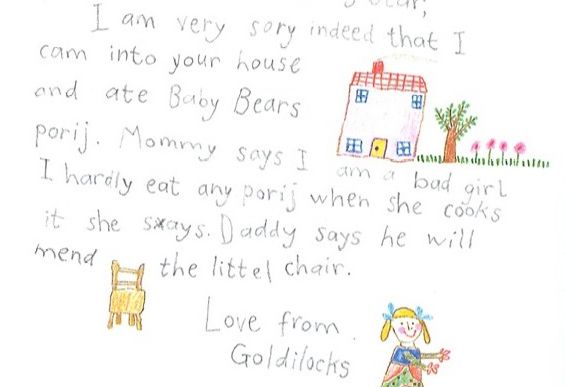 I am very sory indeed that I
cam into your house
and ate Baby Bears
porij. Mommy says I am a bad girl
I hardly eat any porij when she cooks
it she sxays. Daddy says he will
mend the littel chair.
Love from
Goldilocks